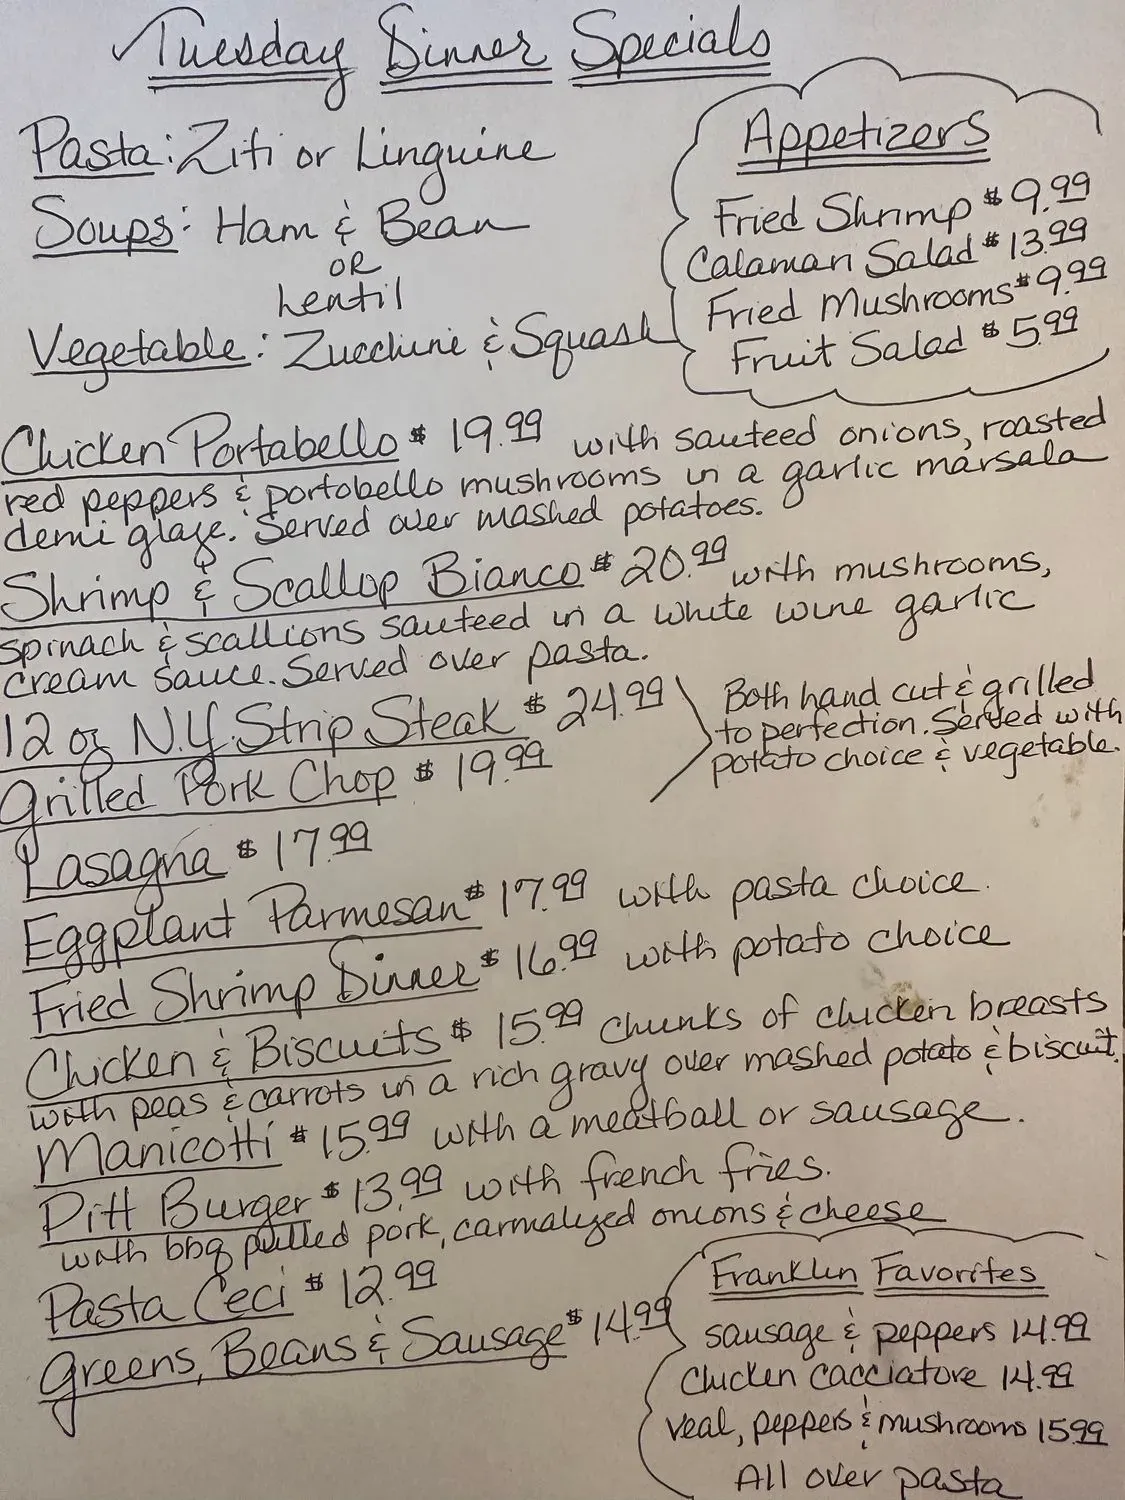 Tuesday Dinner Specials
Pasta: Ziti or Linguine
Soups: Ham & Bean
OR
Lentil
Vegetable: Zucchini & Squash
Appetizers
Fried Shrimp $9.99
Calamari Salad $13.99
Fried Mushrooms $9.99
Fruit Salad $5.99
Chicken Portabello $19.99 with sauteed onions, roasted
red peppers & portobello mushrooms in a garlic marsala
demi glaze. Served over mashed potatoes.
Shrimp & Scallop Bianco $20.99 with mushrooms,
spinach & scallions sauteed in a white wine garlic
cream sauce. Served over pasta.
12 oz N.Y. Strip Steak $24.99
Grilled Pork Chop $19.99
Both hand cut & grilled
to perfection. Served with
potato choice & vegetable.
Lasagna $17.99
Eggplant Parmesan $17.99 with pasta choice.
Fried Shrimp Dinner $16.99 with potato choice
Chicken & Biscuits $15.99 chunks of chicken breasts
with peas & carrots in a rich gravy over mashed potato & biscuit.
Manicotti $15.99 with a meatball or sausage.
Pitt Burger $13.99 with french fries.
with bbq pulled pork, carmalyzed onions & cheese
Pasta Ceci $12.99
Greens, Beans & Sausage $14.99
Franklin Favorites
sausage & peppers 14.99
Chicken cacciatore 14.99
veal, peppers & mushrooms 15.99
All over pasta